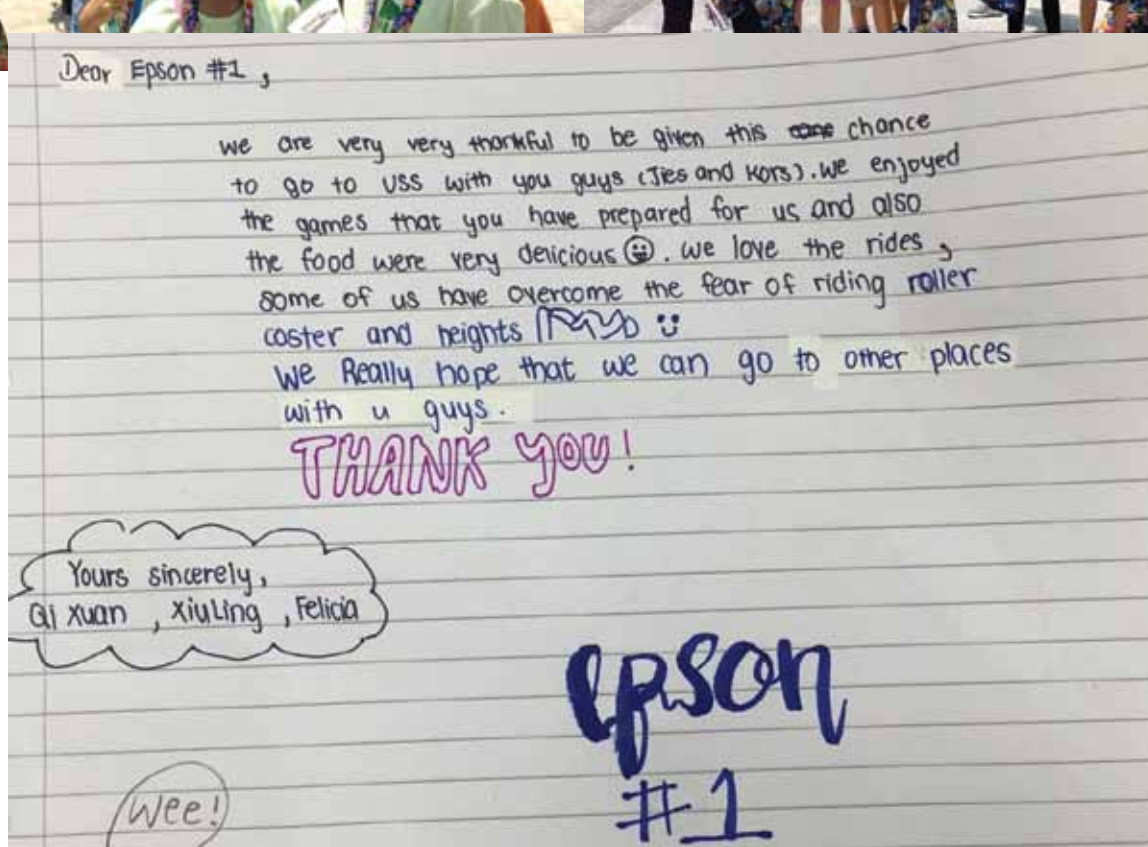 Dear Epson #1,
we are very very thankful to be given this chance
to go to USS with you guys (Jies and Kors). we enjoyed
the games that you have prepared for us and also
the food were very delicious 😀. we love the rides,
some of us have overcome the fear of riding roller
coster and heights :)
We Really hope that we can go to other places
with u guys.
THANK YOU!
Yours sincerely,
Qi Xuan, XiuLing, Felicia
epson
#1
Wee!